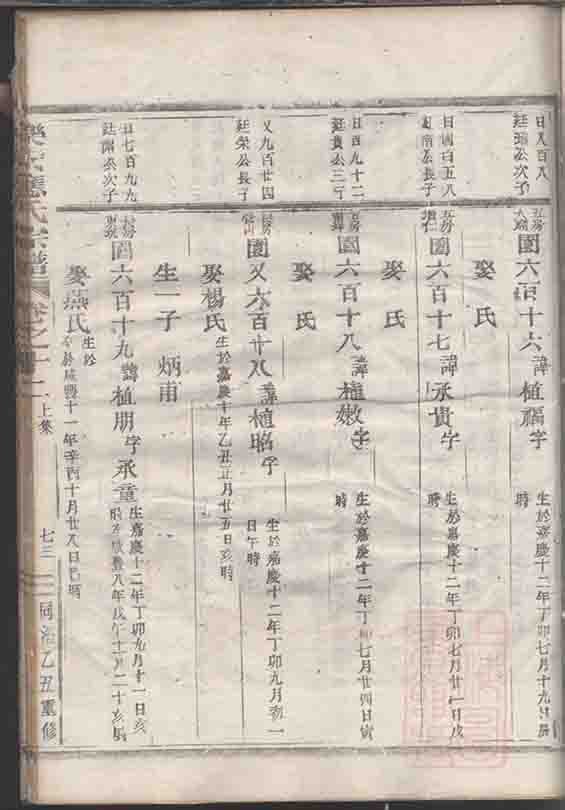 廷瑞公次子
園六百十六諱植福字
生於嘉慶十二年丁卯七月十九日
娶 氏
日 百五八
南公長子
園六百十七諱承貴字
生於嘉慶十二年丁卯七月廿一日戌
時
娶 氏
日四九十二
廷貴公三子
園六百十八諱植嫩字
生於嘉慶十二年丁卯七月廿四日寅
時
娶 氏
又九百廿四
廷榮公長子
園又六百廿八諱植昭字
生於嘉慶十二年丁卯九月初一
日午時
娶楊氏
生於嘉慶十年乙丑正月廿五日亥時
生一子 炳甫
日七百九九
廷 公次子
園六百十九諱植朋字承童
生嘉慶十二年丁卯九月十一日亥
歿 咸豐八年戊午十 月二十亥時
娶燕氏
生於
卒於咸豐十一年辛酉十月廿八日巳時
樂 氏宗譜
卷之十二
上集
七三
同治乙丑重修